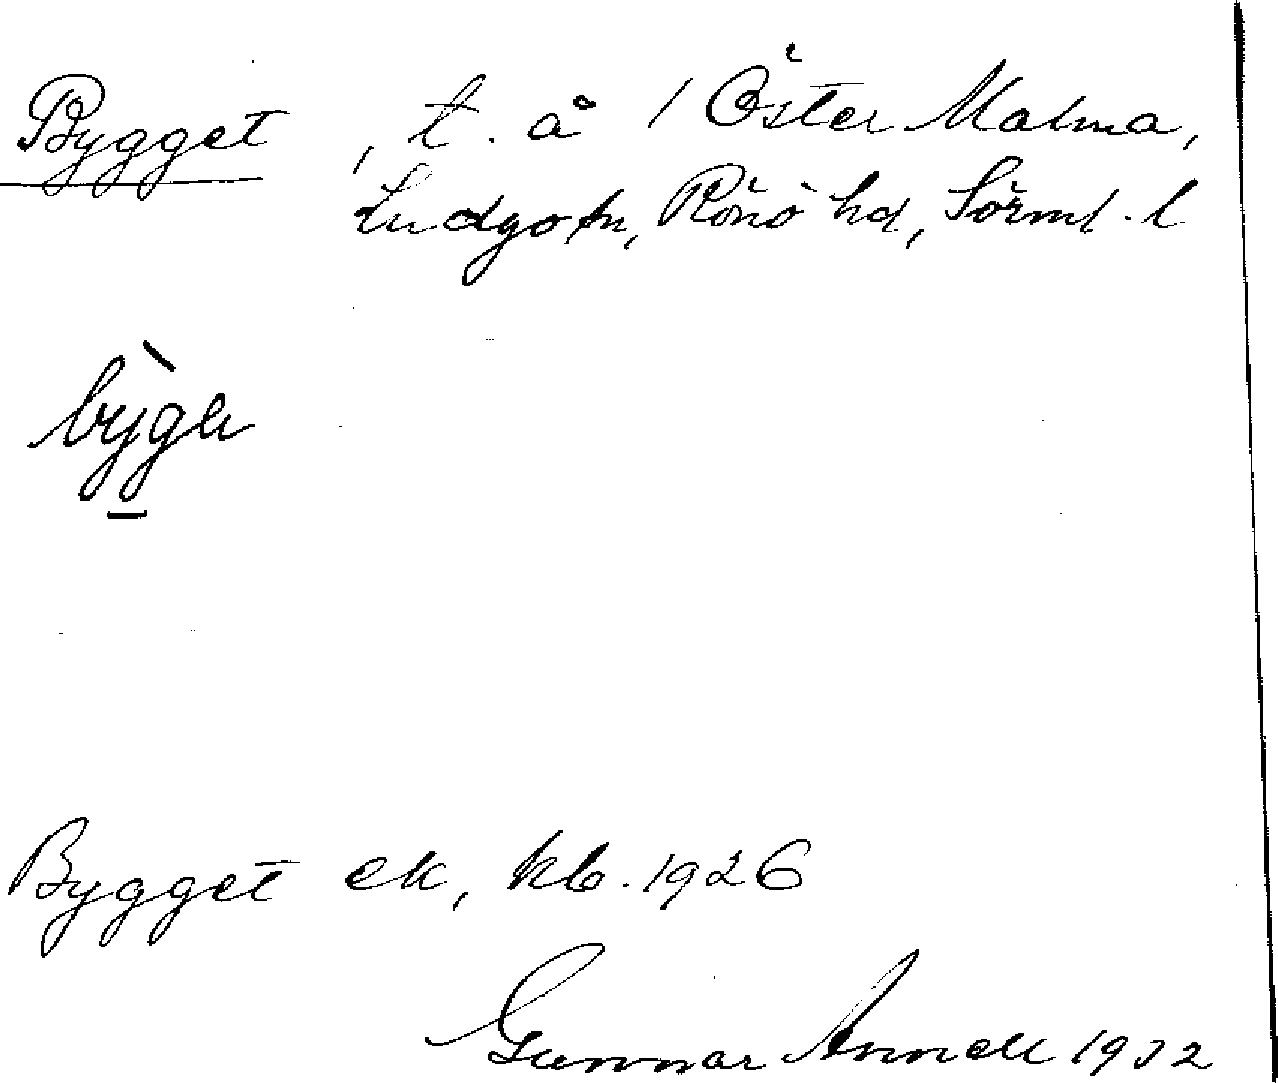 Bygget, t. å / Öster Malma,
Ludgo sn, Rönö hd, Sörml. l
bỳgu
Bygget ek, kb. 1926
Gunnar Annell 1932